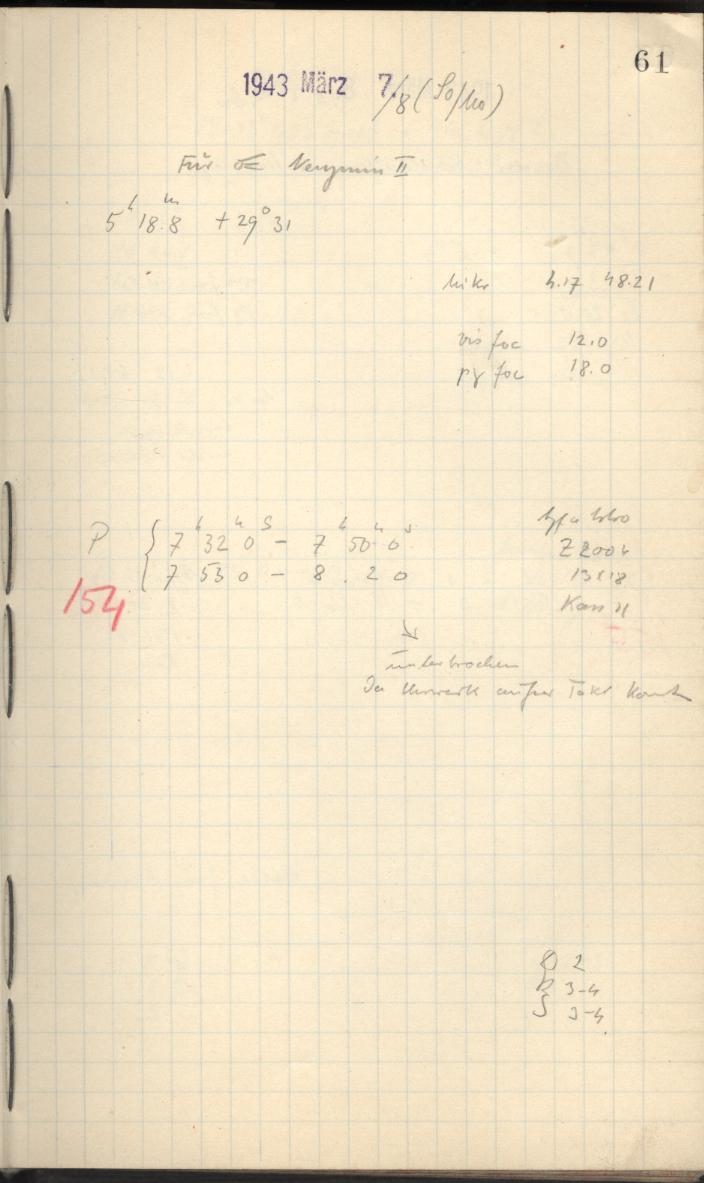 61
1943 März 7./8 (So/Mo)
Für II
5ʰ 18.ᵐ8 + 29° 31
Mikr 4.17 48.21
vis foc 12.0
pg foc 18.0
P { 7ʰ 32ᵐ 0ˢ – 7ʰ 50ᵐ 0ˢ
7 53 0 – 8 . 2 0
154
Z 2004
13x18
Kass II
↘
unterbrochen
Da Uhrwerk außer Takt kommt
2
3-4
S 3-4